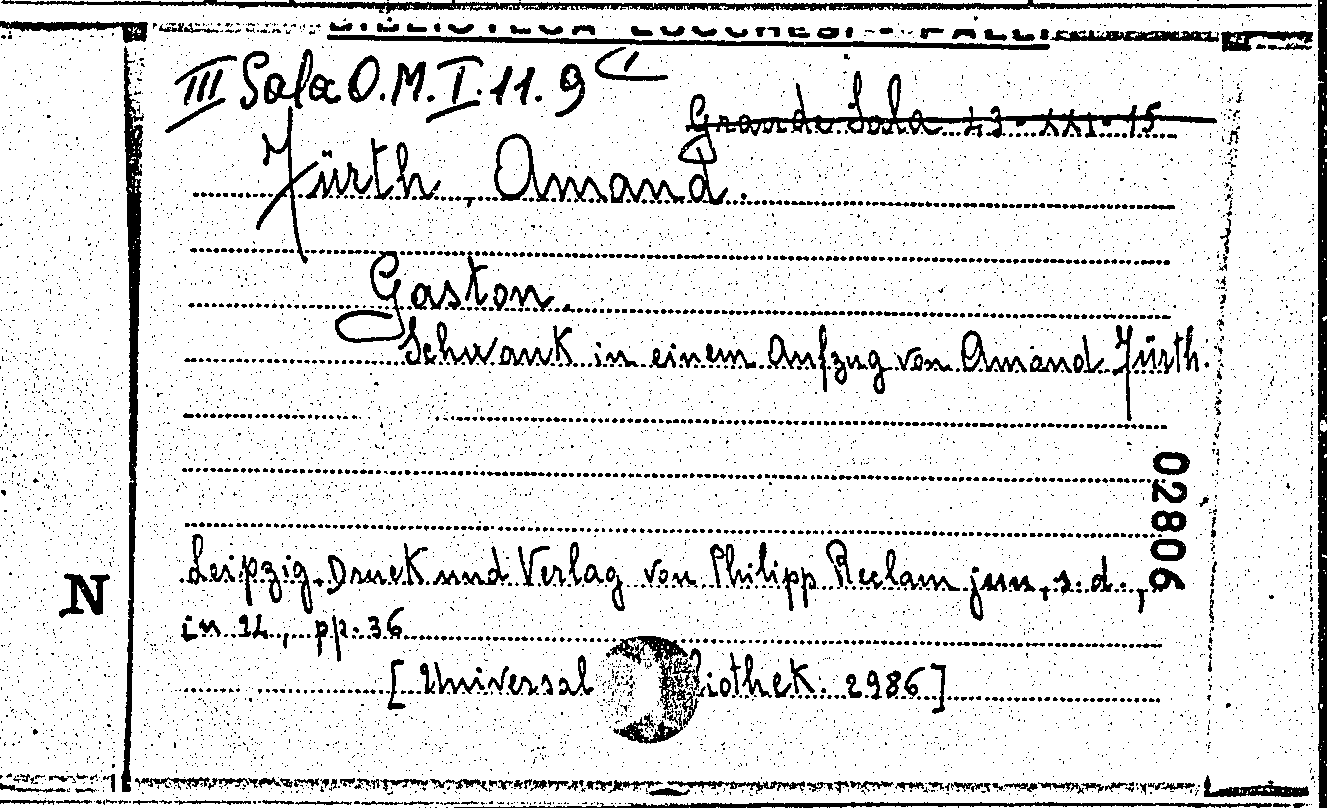 BIBLIOTECA LUCCHESI - PALLI
III Sala O.M.I.11.9
Grande Sala 23-XXI-15
Fürth, Amand.
Gaston.
Schwank in einem Aufzug von Amand Fürth.
02806
Leipzig. Druck und Verlag von Philipp Reclam jun., s.d.,
N
in pp. 36
[Universal Bibliothek. 2986]